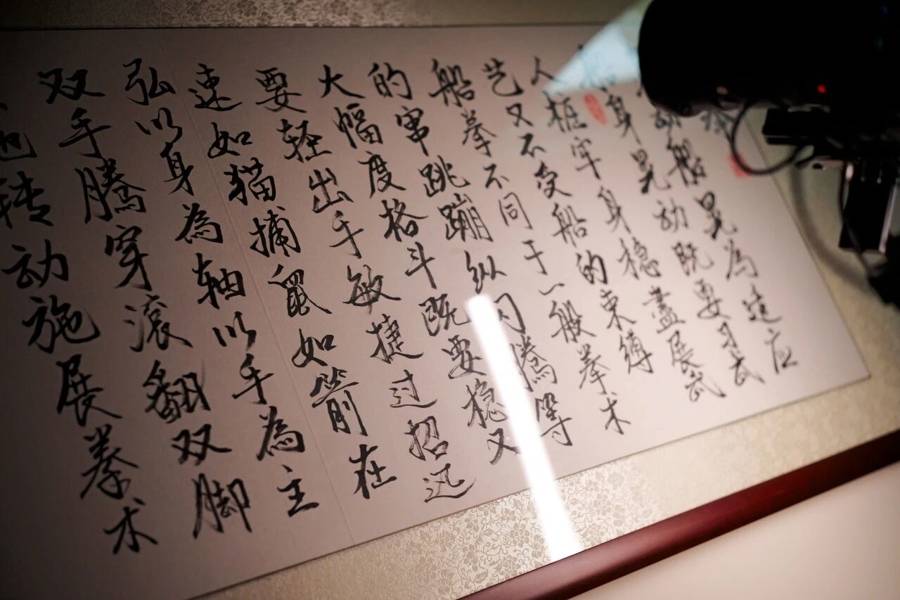 动船晃為适应
身晃船动既要习武
人桩牢身稳盡展武
艺又不受船的束缚
船拳不同于一般拳术
的窜跳蹦纵闪腾等
大幅度格斗既要稳又
要轻出手敏捷过招迅
速如猫捕鼠如箭在
弘以身為轴以手為主
双手腾穿滚翻双脚
转动施展拳术